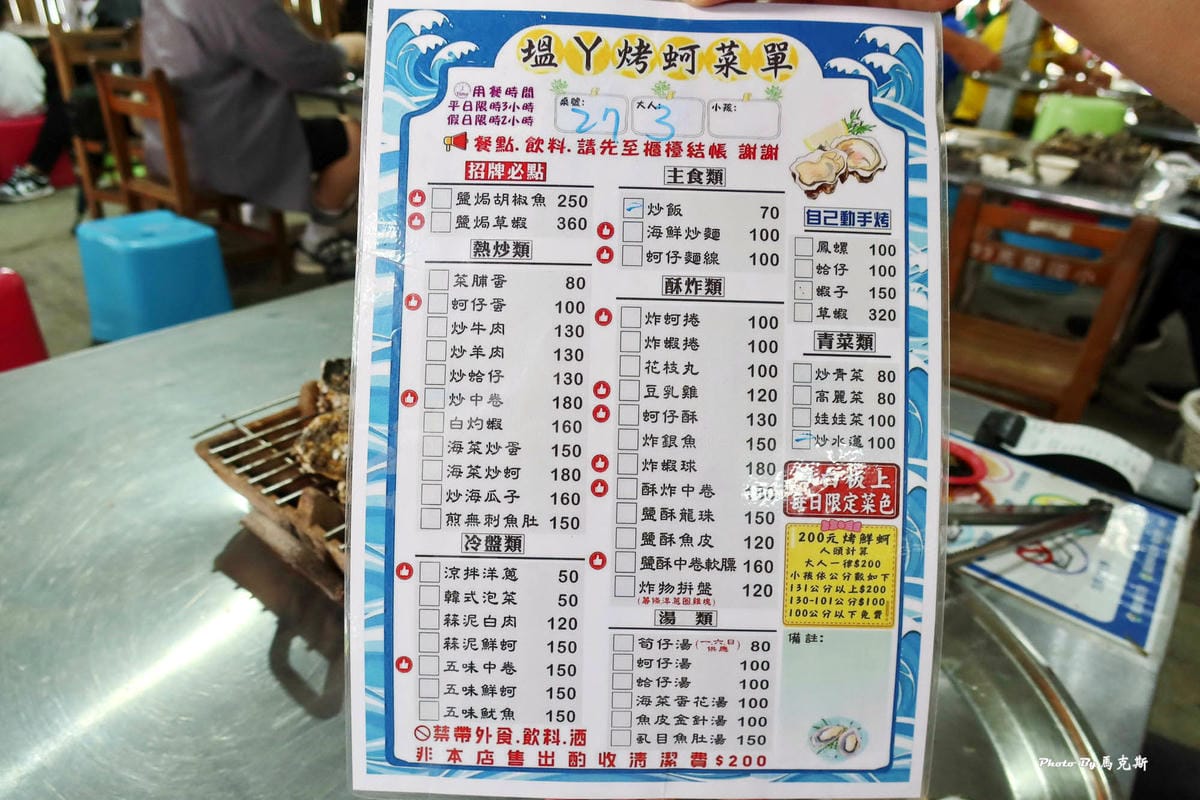 塭丫烤蚵菜單
用餐時間
平日限時3小時
假日限時2小時
桌號: 27
大人: 3
小孩:
餐點.飲料.請先至櫃檯結帳 謝謝
招牌必點
鹽焗胡椒魚 250
鹽焗草蝦 360
熱炒類
菜脯蛋 80
蚵仔蛋 100
炒牛肉 130
炒羊肉 130
炒蛤仔 130
炒中卷 180
白灼蝦 160
海菜炒蛋 150
海菜炒蚵 180
炒海瓜子 160
煎無刺魚肚 150
冷盤類
涼拌洋蔥 50
韓式泡菜 50
蒜泥白肉 120
蒜泥鮮蚵 150
五味中卷 150
五味鮮蚵 150
五味魷魚 150
主食類
炒飯 70
海鮮炒麵 100
蚵仔麵線 100
酥炸類
炸蚵捲 100
炸蝦捲 100
花枝丸 100
豆乳雞 120
蚵仔酥 130
炸銀魚 150
炸蝦球 180
酥炸中卷
鹽酥龍珠 150
鹽酥魚皮 120
鹽酥中卷軟臊 160
炸物拼盤 120
(薯條洋蔥圈雞塊)
湯 類
筍仔湯(一六日供應) 80
蚵仔湯 100
蛤仔湯 100
海菜蛋花湯 100
魚皮金針湯 100
虱目魚肚湯 150
自己動手烤
鳳螺 100
蛤仔 100
蝦子 150
草蝦 320
青菜類
炒青菜 80
高麗菜 80
娃娃菜 100
炒水蓮 100
白板上
每日限定菜色
200元烤鮮蚵
人頭計算
大人一律$200
小孩依公分數如下
131公分以上$200
130-101公分$100
100公分以下免費
備註:
禁帶外食.飲料.酒
非本店售出酌收清潔費$200
Photo By 馬克斯